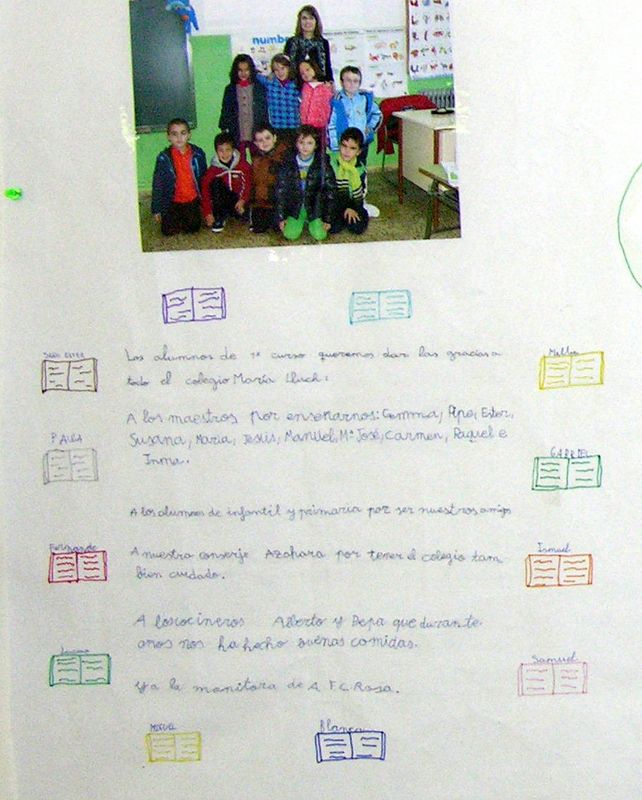 numbe
Los alumnos de 1º curso queremos dar las gracias a
todo el colegio María Lluch:
A los maestros por enseñarnos: Gemma, Pepe, Ester,
PAULA
Susana, María, Jesús, Manuel, Mª José, Carmen, Raquel e
Inma.
GABRIEL
A los alumnos de infantil y primaria por ser nuestros amigos
A nuestra conserje Azahara por tener el colegio tam
Ismael
bien cuidado.
A los cocineros Alberto y Pepa que durante
años nos ha hecho buenas comidas.
Samuel
Y a la monitora de A. F.C. Rosa.
MIGUEL
Blanca